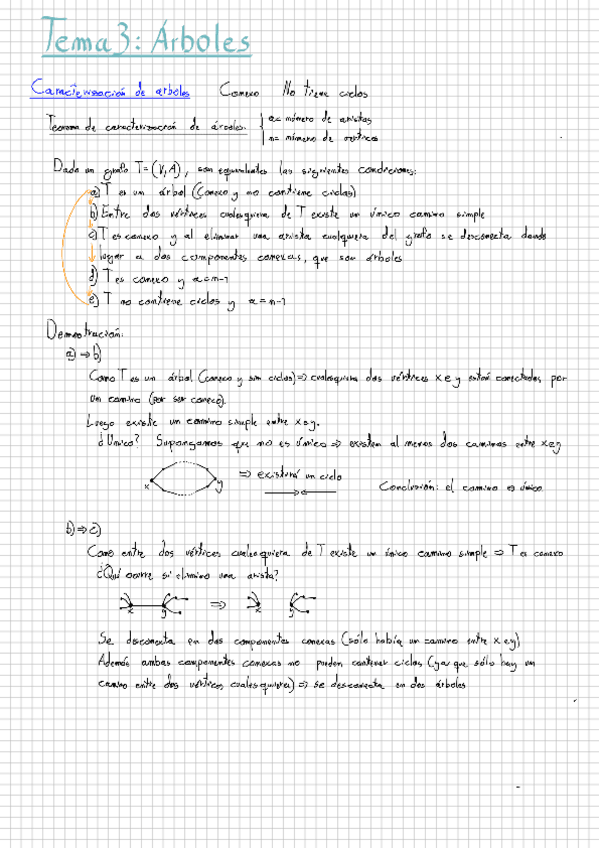 Tema 3: Árboles
Caracterización de arboles Conexo No tiene ciclos
Teorema de caracterización de árboles. { a = número de aristas
n = número de vertices
Dado un grafo T = (V, A), son equivalentes las siguientes condiciones:
a) T es un árbol (Conexo y no contiene ciclos)
b) Entre dos vértices cualesquiera de T existe un único camino simple
c) T es conexo y al eliminar una arista cualquiera del grafo se desconecta dando
lugar a dos componentes conexas, que son árboles
d) T es conexo y a = n-1
e) T no contiene ciclos y a = n-1
Demostración:
a) ⇒ b)
Como T es un árbol (conexo y sin ciclos) ⇒ cualesquiera dos vértices x e y están conectados por
un camino (por ser conexo).
Luego existe un camino simple entre x e y.
¿Único? Supongamos que no es único ⇒ existen al menos dos caminos entre x e y
x y ⇒ existiría un ciclo
Conclusión: el camino es único
b) ⇒ c)
Como entre dos vértices cualesquiera de T existe un único camino simple ⇒ T es conexo
¿Qué ocurre si elimino una arista?
x y ⇒ x y
Se desconecta en dos componentes conexas (sólo había un camino entre x e y)
Además ambas componentes conexas no pueden contener ciclos (ya que sólo hay un
camino entre dos vértices cualesquiera) ⇒ se desconecta en dos árboles